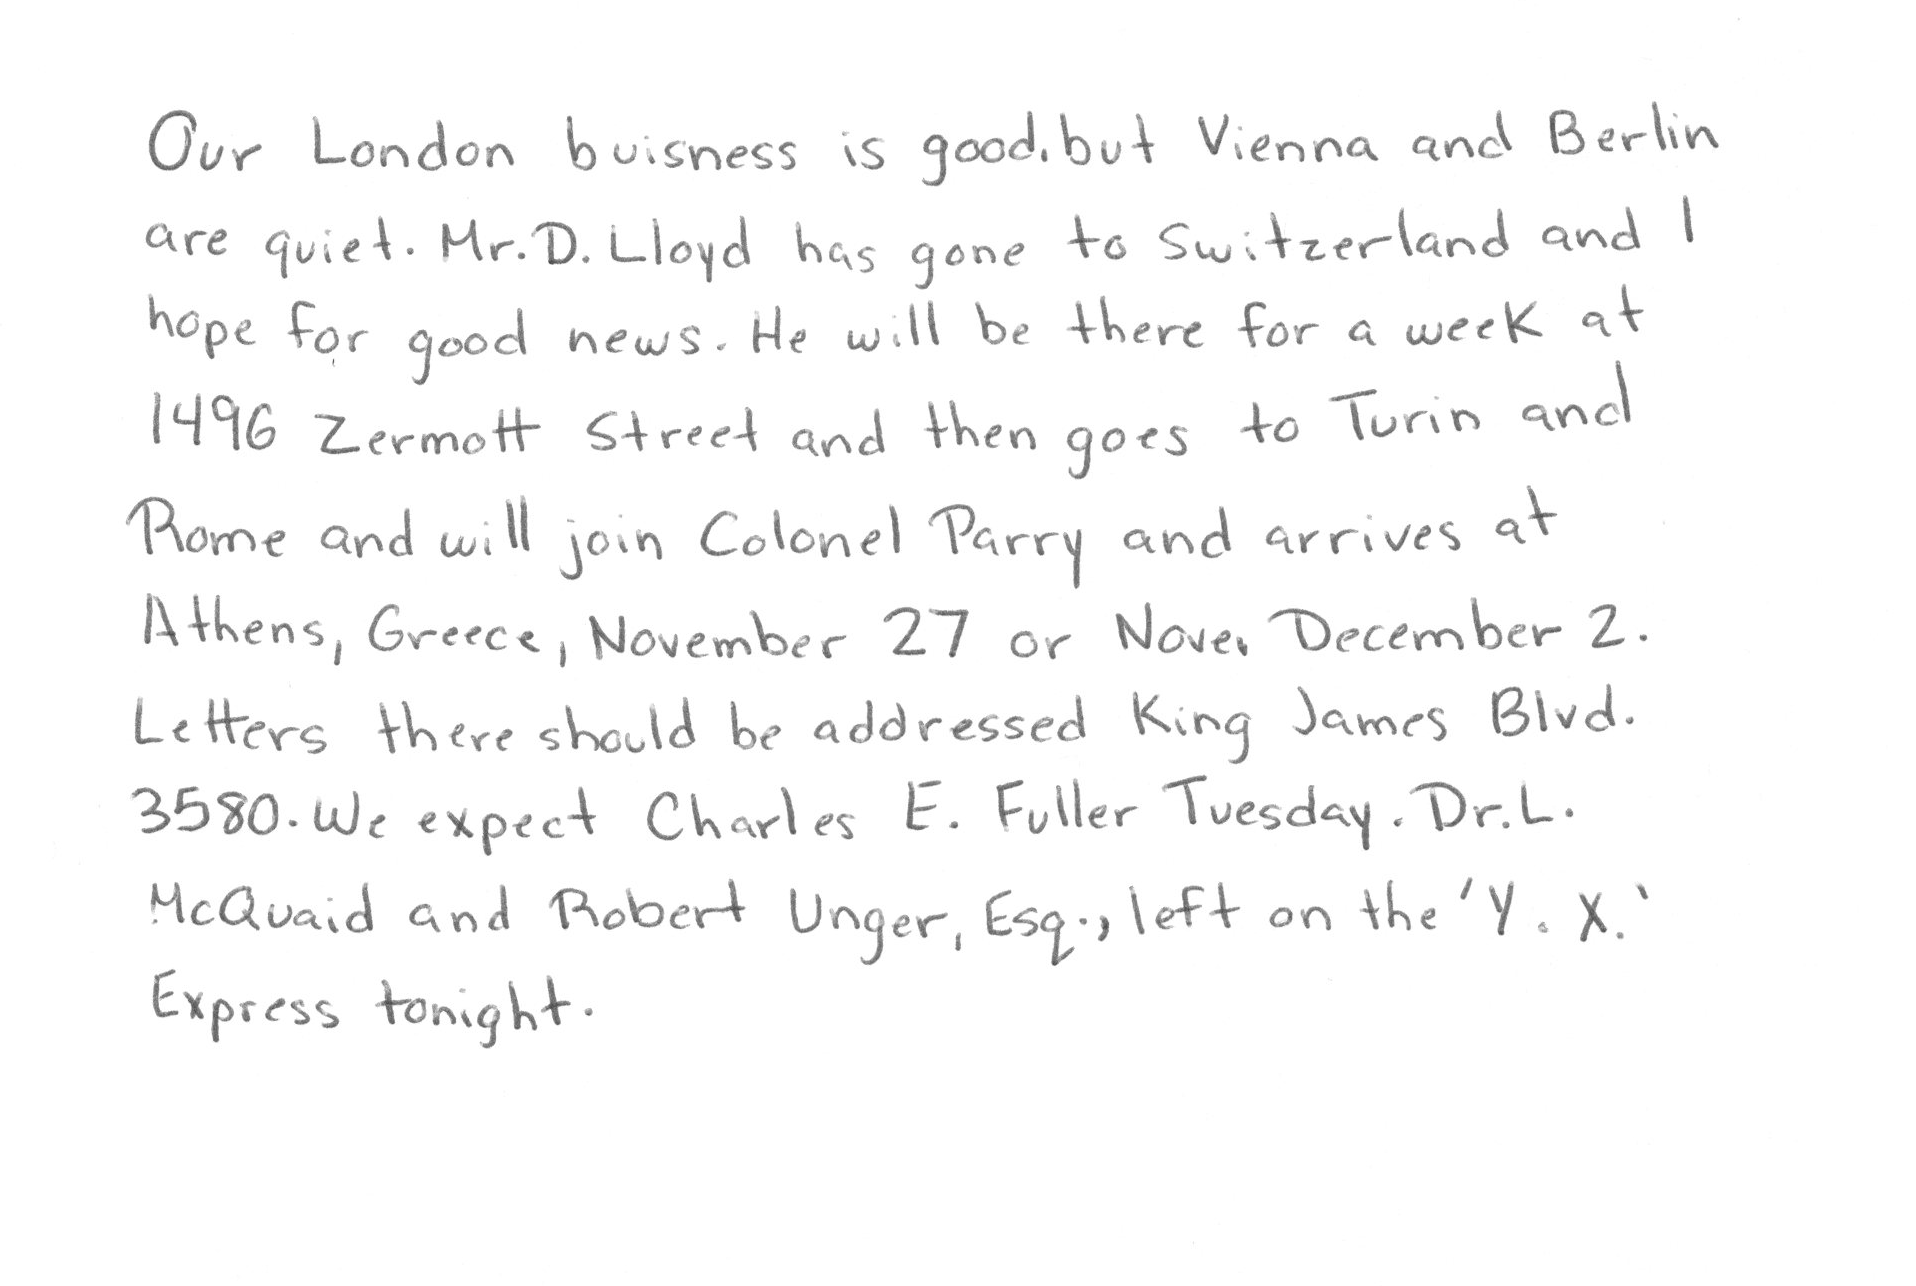 Our London buisness is good. but Vienna and Berlin
are quiet. Mr. D. Lloyd has gone to Switzerland and I
hope for good news. He will be there for a week at
1496 Zermott Street and then goes to Turin and
Rome and will join Colonel Parry and arrives at
Athens, Greece, November 27 or Nove. December 2.
Letters there should be addressed King James Blvd.
3580. We expect Charles E. Fuller Tuesday. Dr. L.
McQuaid and Robert Unger, Esq., left on the 'Y. X.'
Express tonight.